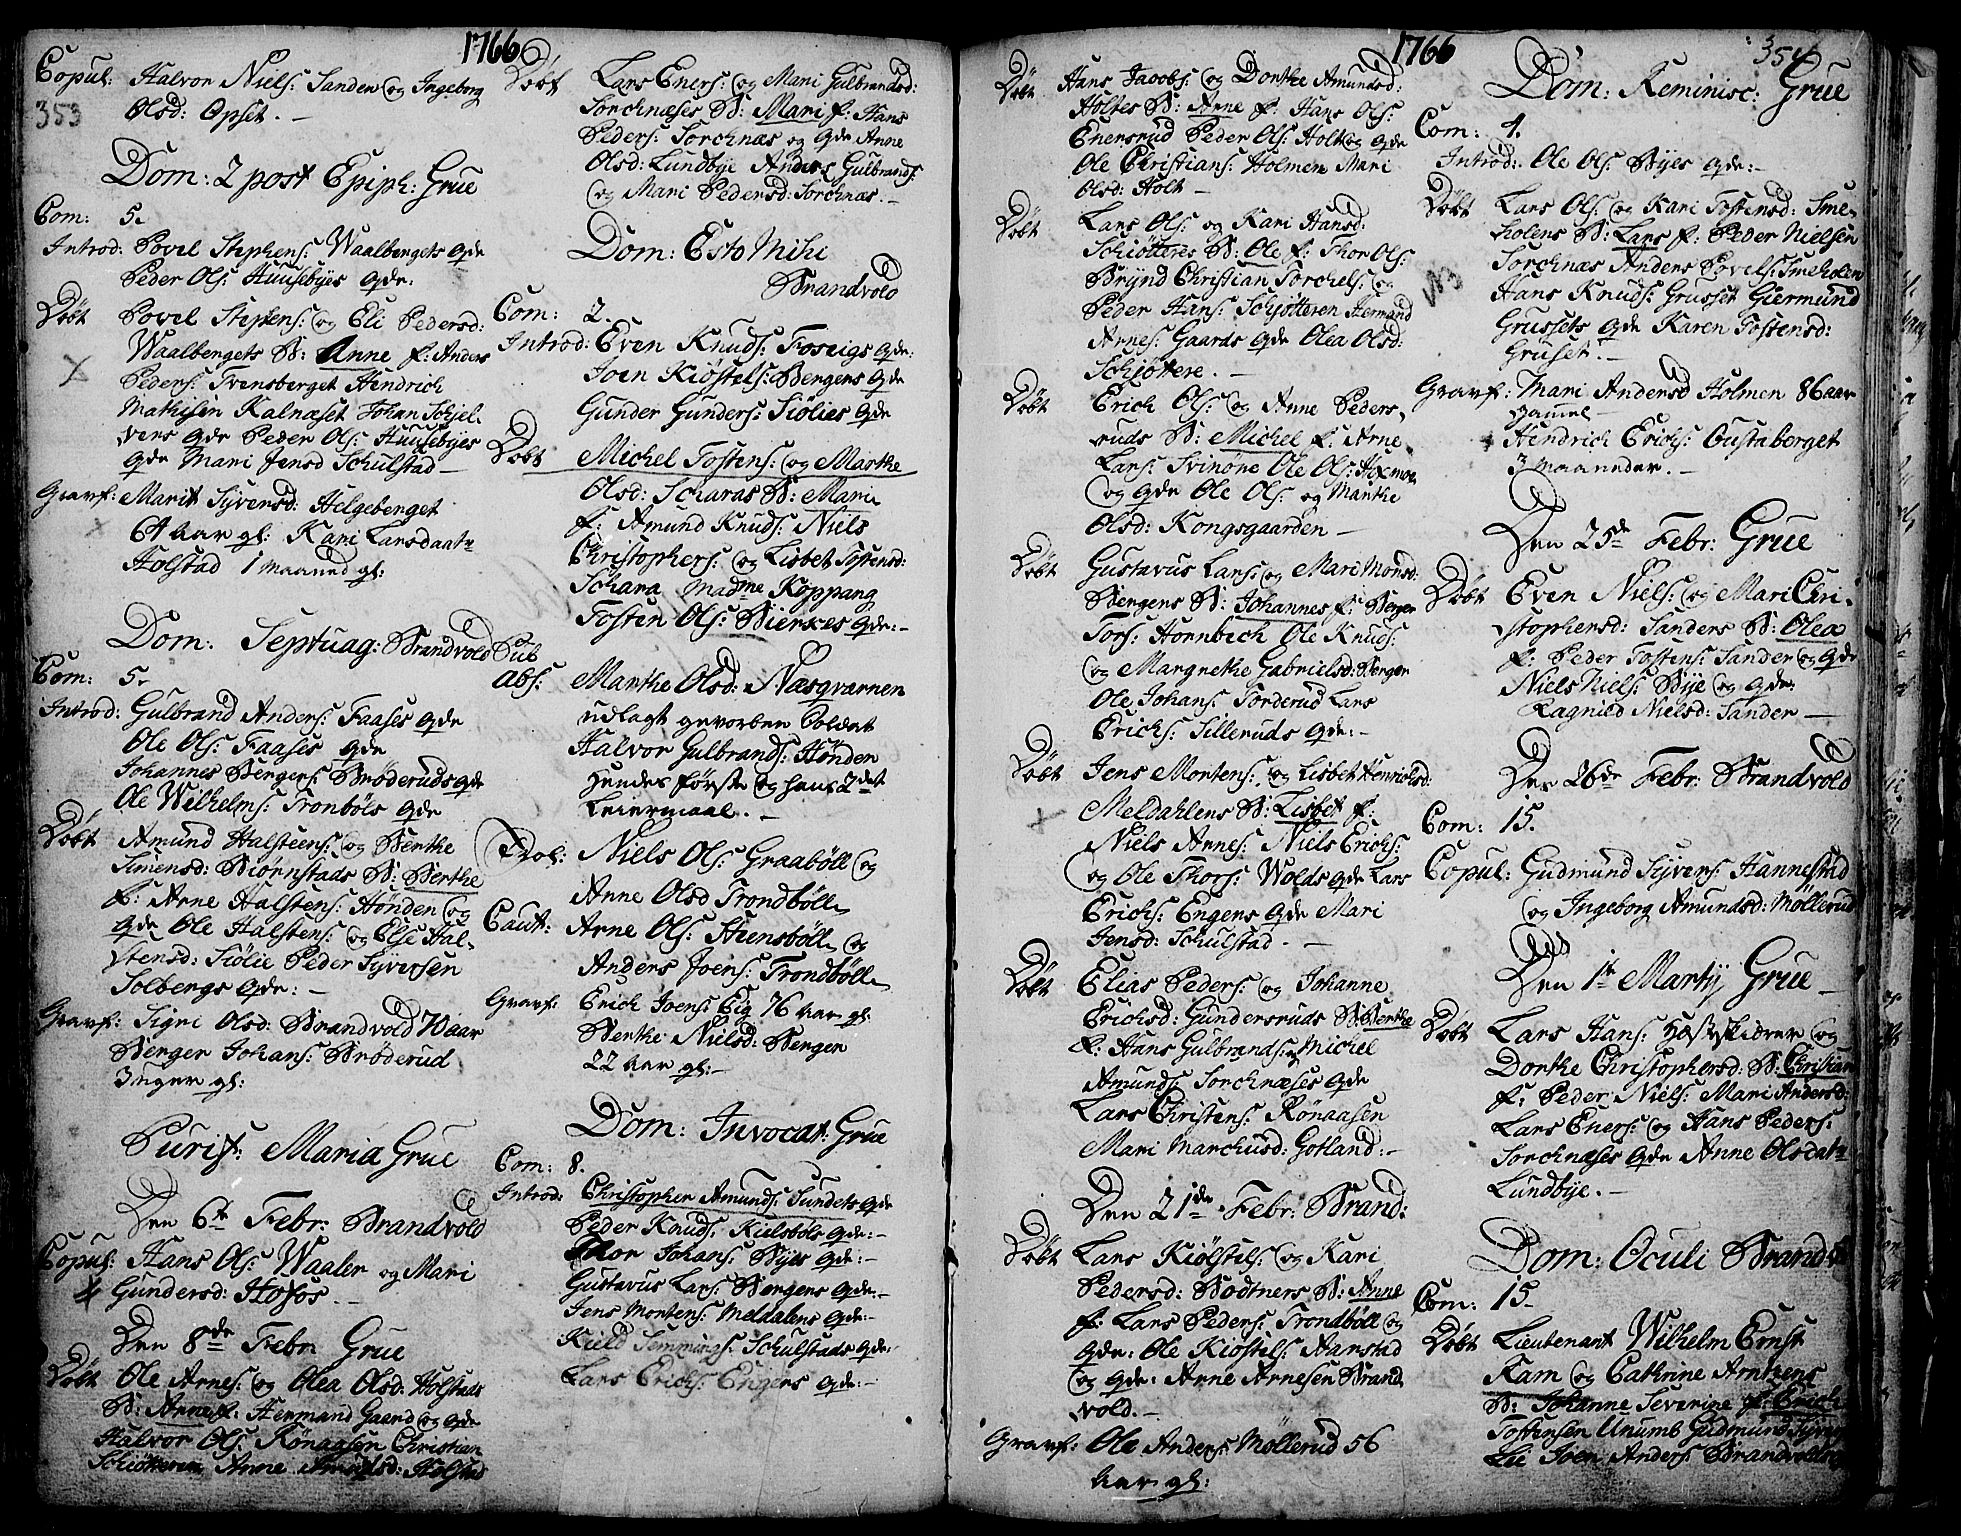 1766
Copul: Halvor Niels: Sanden og Ingeborg
353
Olsd: Opset. —
Dom: 2 post Epiph: Grue
Com: 5.
Introd: Povel Stephens: Waalbergets qde
Peder Ols: Huusebyes qde:
Døbt Povel Stephens: og Eli Pedersd:
Waalbergets B: Anne f: Anders
Peders: Frensberget Hendrich
Mathisen Kalnæset Johan Schjel-
vers qde Peder Ols: Huusebyes
qde Mari Jensd Schulstad —
Gravf: Marit Syversd: Helgeberget
64 Aar gl: Kari Larsdaatr
Holstad 1 Maaned gl:
Dom: Septuag: Brandvold
Com: 5.
Introd: Gulbrand Anders: Faases qde
Ole Ols: Faases qde
Johannes Bergers: Brøderuds qde
Ole Wilhelms: Tronbøls qde
Døbt Amund Halsteens: og Berthe
Simensd: Biørnstads B: Berthe
f: Arne Halstens: Hønden og
qde Ole Halstens: og Else Hal-
stensd: Siølie Peder Syversen
Solbergs qde: —
Gravf: Signi Olsd: Brandvold 70 aar
Berger Johans: Brøderud
3 uger gl:
Purif: Maria Grue
Den 6te Febr: Brandvold
Copul: Hans Ols: Waaler og Mari
Gundersd: Hofos —
Den 8de Febr: Grue
Døbt Ole Arnes: og Olea Olsd: Holstads
B: Arne f: Hermand Gaard og qde
Halvor Ols: Rönaasen Christian
Schiötteren Anne Olsd: Holstad
Døbt Lars Eners: og Mari Gulbrandsd:
Sorchnæses B: Mari f: Hans
Peders: Sorchnæs og qde Anne
Olsd: Lundbye Anders Gulbrands:
og Mari Pedersd: Sorchnæs. —
Dom: Esto Mihi
Brandvold
Com: 2.
Introd: Even Knuds: Foseigs qde:
Joen Kiøstels: Bergens qde
Gunder Gunders: Siølies qde
Døbt Michel Tostens: og Marthe
Olsd: Scharas B: Mari
f: Amund Knuds: Niels
Christophers: og Lisbet Tostensd:
Schara Madme Koppang
Tosten Ols: Bierkes qde: —
Pub
Abs: Marthe Olsd: Næsqværnen
udlagt gevorben Soldat
Halvor Gulbrands: Hønden
hendes første og hans 2det
Leiermaal. —
Trol: Niels Ols: Graabøll og
Anne Olsd Trondbøll
Caut: Arne Ols: Steensbøll og
Anders Joens: Trondbøll
Gravf: Erich Joens: Eig 76 Aar gl:
Berthe Nielsd: Berger
22 Aar gl: —
Dom: Invocat: Grue
Com: 8.
Introd: Christopher Amunds: Sundets qde
Peder Knuds: Kielsbøls qde: —
Thor Johans: Byes qde: —
Gustavus Lars: Bergens qde: —
Jens Mortens: Meldalens qde: —
Kield Semmings: Schulstads qde: —
Lars Erichs: Engens qde: —
1766
354
Døbt Hans Jacobs: og Dorthe Amundsd:
Holtes B: Arne f: Hans Ols:
Enersrud Peder Ols: Holt og qde
Ole Christians: Holmen Mari
Olsd: Holt —
Døbt Lars Ols: og Kari Hansd:
Schiötteres B: Ole f: Thor Ols:
Brynd Christian Sorchels: og
Peder Hans: Schjötteren Hermand
Arnes: Gaards qde Olea Olsd:
Schjöttere. —
Døbt Erich Ols: og Anne Peders-
ruds B: Michel f: Arne
Lars: Svinöne Ole Ols: Hoxmoe
og qde Ole Ols: og Marthe
Olsd: Kongsgaarden —
Døbt Gustavus Lars: og Mari Monsd:
Bergens B: Johannes f: Berger
Tors: Hornbech Ole Knuds:
og Margrethe Gabrielsd: Berger
Ole Johans: Torderud Lars
Erichs: Silleruds qde: —
Døbt Jens Mortens: og Lisbet Henrichsd:
Meldahlens B: Lisbet f:
Niels Arnes: Niels Erichs:
og Ole Thors: Wolds qde Lars
Erichs: Engens qde Mari
Jensd: Schulstad. —
Døbt Elias Peders: og Johanne
Erichsd: Gundersruds B: Berthe
f: Hans Gulbrands: Michel
Amunds: Sorchnæses qde
Lars Christens: Rönaasen
Mari Marchusd: Gotland: —
Den 21de Febr: Brand:
Døbt Lars Kiølstils: og Kari
Pedersd: Bodtners B: Anne
f: Lars Peders: Trondbøll og
qde: Ole Kiøstils: Aanstad
og qde: Arne Arnesen Brand
vold. —
Gravf: Ole Anders: Møllerud 56
Aar gl:
Dom: Reminisc: Grue
Com: 4.
Introd: Ole Ols: Byes qde: —
Døbt Lars Ols: og Kari Tostensd: Sme-
holens B: Lars f: Peder Nielsen
NB
Sorchnæs Anders Povels: Smeholen
Hans Knuds: Grusset Giermund
Grussets qde Karen Tostensd:
Gruset. —
Gravf: Mari Andersd Holmen 86 aar
gamel —
Hendrich Erichs: Gustaberget
3 Maaneder. —
Den 25de Febr: Grue
Døbt Even Niels: og Mari Chri-
stophersd: Sanders B: Olea
f: Peder Tostens: Sander og qde
Niels Niels: Bye og qde:
Ragnild Nielsd: Sander —
Den 26de Febr: Brandvold
Com: 15.
Copul: Gudmund Syvers: Hannestad
og Ingeborg Amundsd: Møllerud
Den 1te Martij Grue
Døbt Lars Hans: Hesteskiærer og
Dorthe Christophersd: B: Christian
f: Peder Niels: Mari Andersd:
Lars Eners: og Hans Peders:
Sorchnæses qde Anne Olsdatr
Lundbye. —
Dom: Oculi Brandv
Com: 15.
Døbt Lieutenant Wilhelm Ernst
Ram og Cathrine Arntzens
B: Johanne Severine f: Erich
Tostensen Unumb Gudmund Syvers
Lie Joen Anders: Brandvold